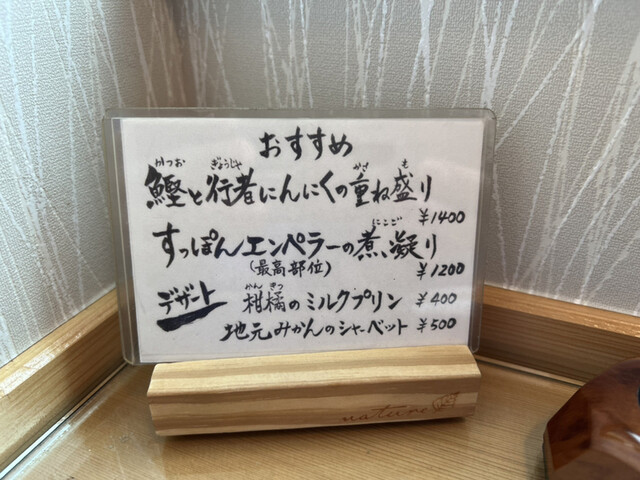 おすすめ
かつお ぎょうじゃ かさ も
鰹と行者にんにくの重ね盛り
¥1400
にこご
すっぽんエンペラーの煮凝り
(最高部位) ¥1200
かんきつ
デザート 柑橘のミルクプリン ¥400
地元みかんのシャーベット ¥500
nature